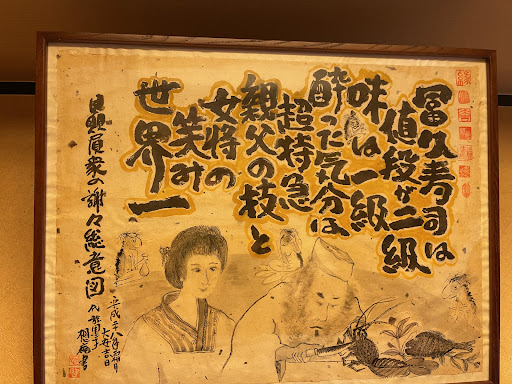 冨久寿司は
値段が二級
味は一級
酔った気分は
超特急
親父の技と
女将の
笑み
世界一
衆の謝々総意図
平成十八年霜月
大安吉日